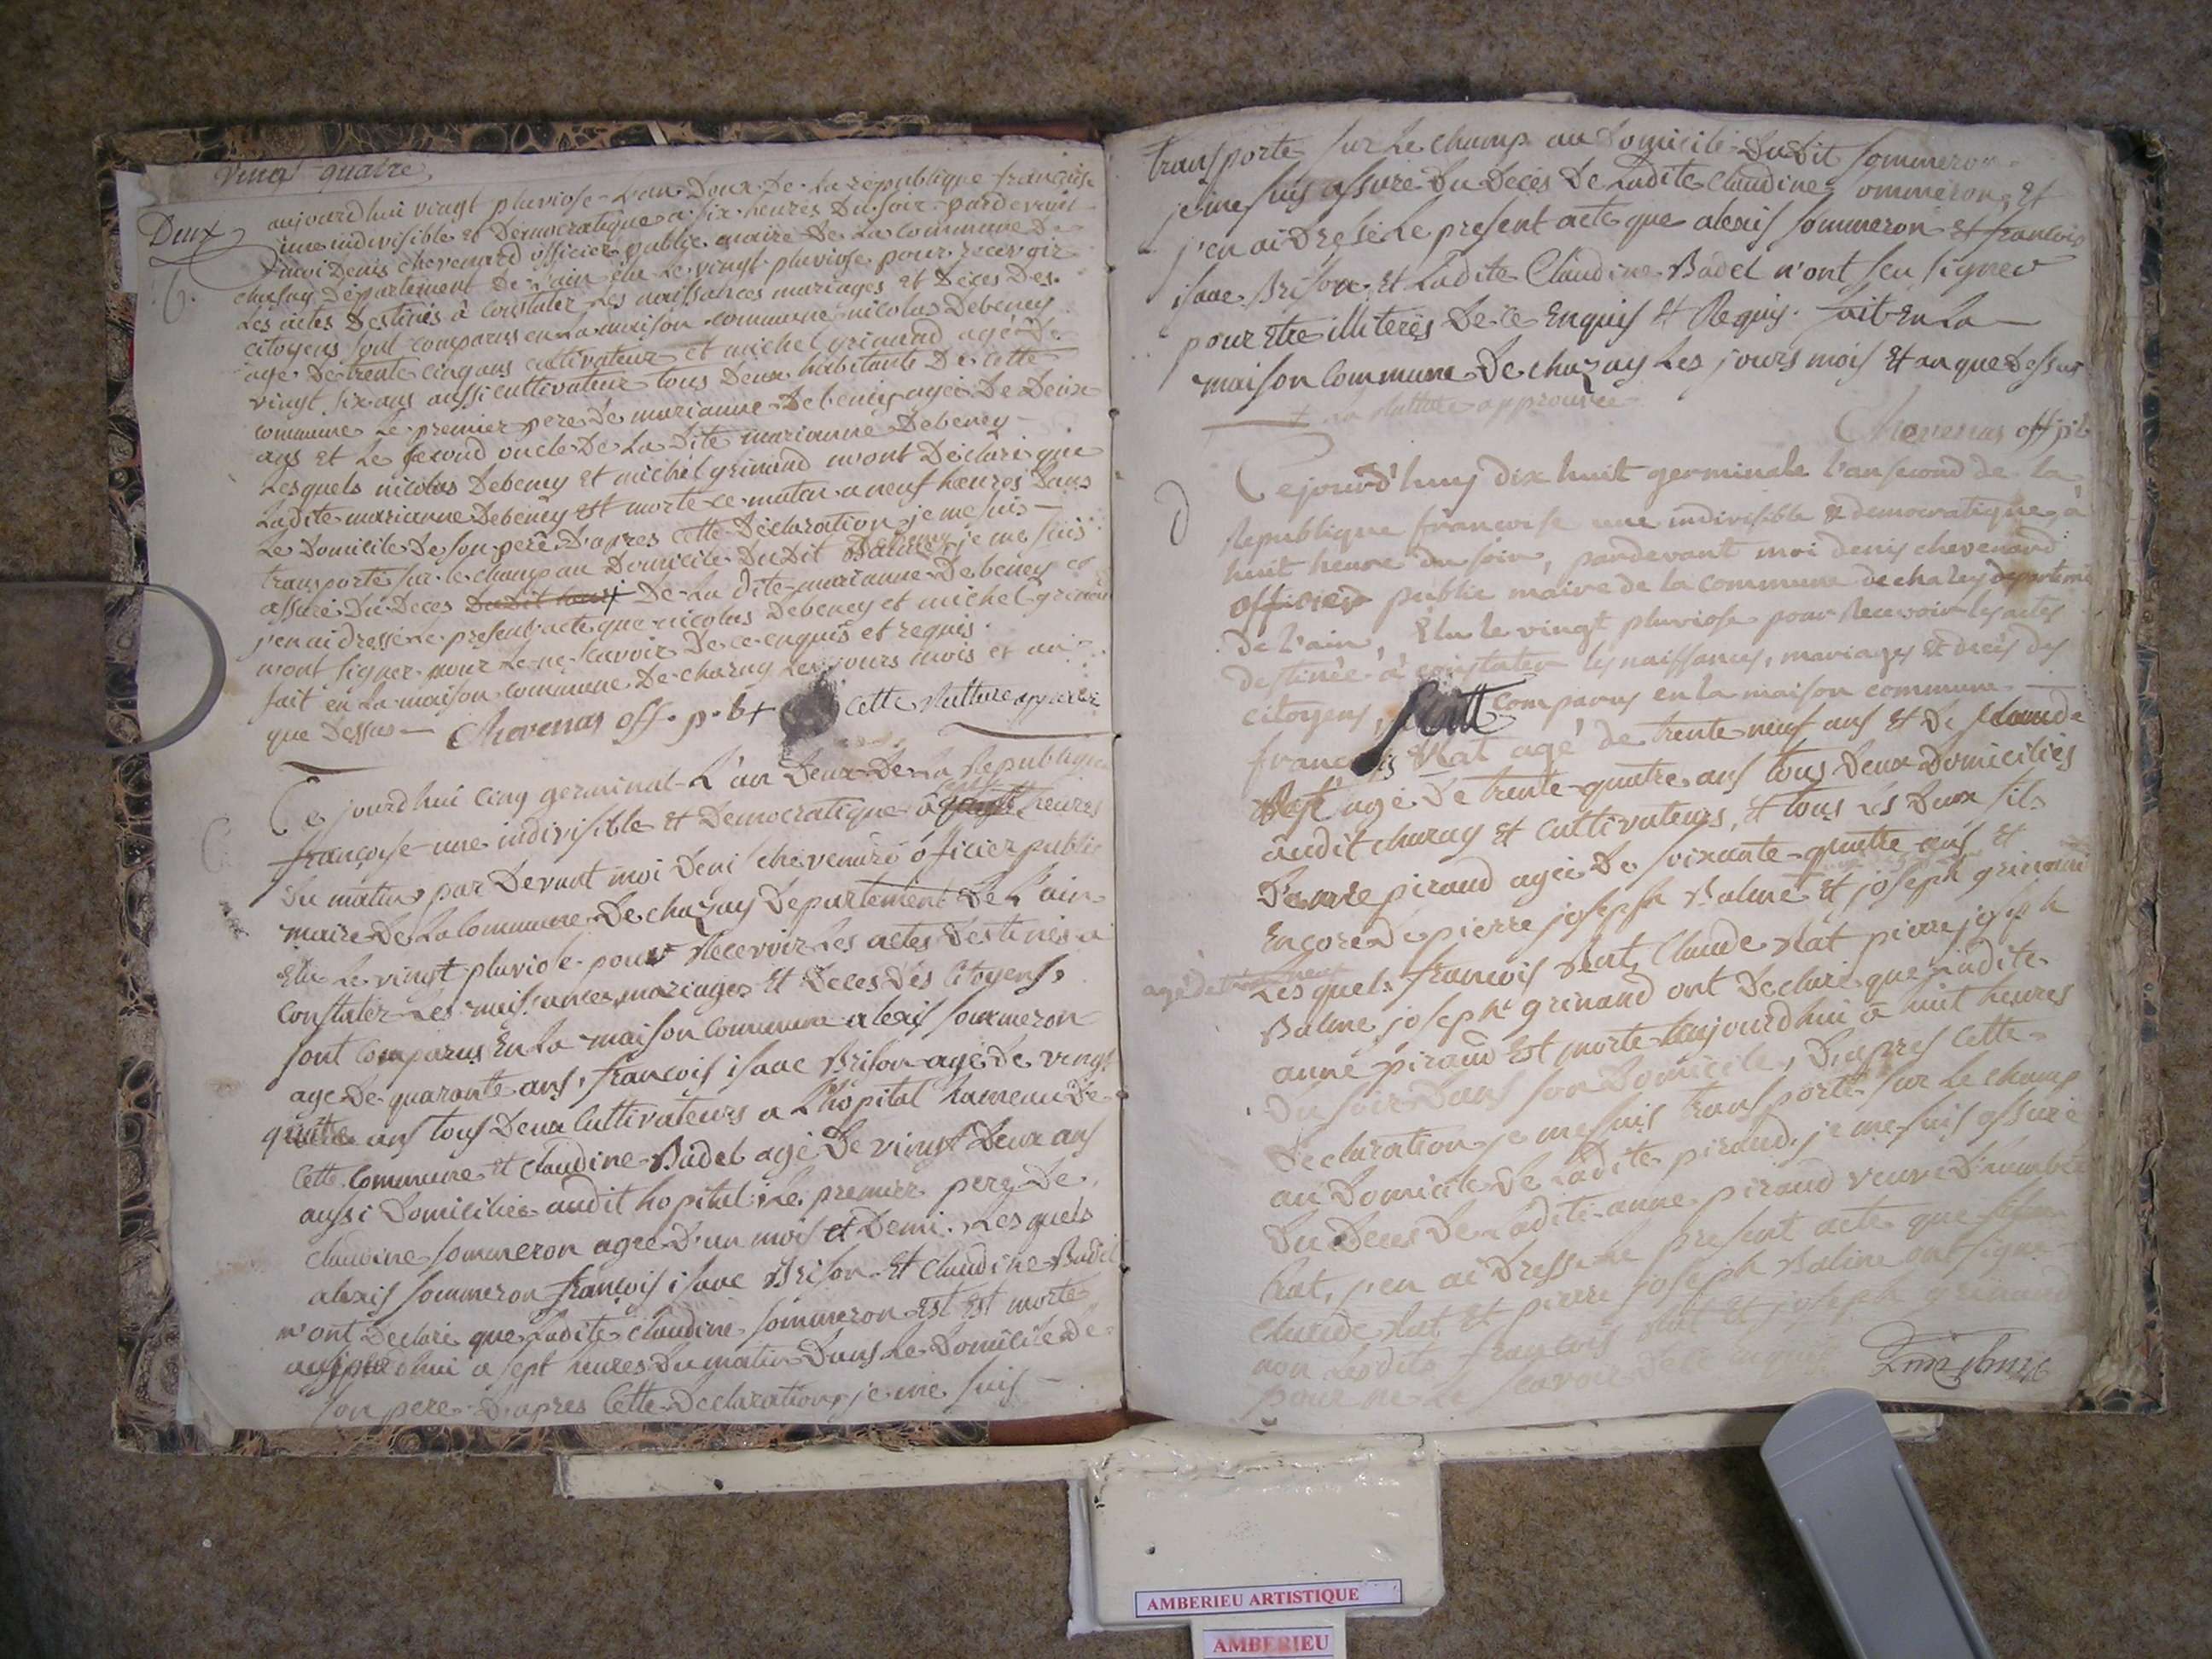 vingt quatre
Deux
aujourdhui vingt pluviose L'an Deux De La republique françoise
une indivisible et Democratique a six heures Du soir pardevant
moi Denis chevenard officier public maire De La commune De
chasay Département De L'ain élu Le vingt pluviose pour recevoir
Les actes Destinés à constater Les naissances mariages et Deces Des
citoyens sont comparus en La maison commune nicolas Debeney
agé De trente cinq ans cultivateur et michel grinand agé De
vingt six ans aussi cultivateur tous Deux habitants De cette
commune Le premier pere De marianne Debeney agée De Deux
ans et Le second oncle De La Dite marianne Debeney
Lesquels nicolas Debeney et michel grinand m'ont Déclaré que
Ladite marianne Debeney est morte ce matin a neuf heures Dans
Le Domicile De son pere D'apres cette Déclaration je me suis
transporté sur le champ au Domicile DuDit Debeney je me suis
assuré Du Deces DuDit + De La dite marianne Debeney et
j'en ai dressé Le present acte que nicolas Debeney et michel grinand
n'ont signer pour Le ne scavoir De ce enquis et requis
fait en La maison commune De chazay Les jours mois et an
que Dessus Chevenar off. p. b + cette Rature approuvée
Ce jourdhui cinq germinal L'an Deux De La Republique
françoise une indivisible et Democratique à sept heures
Du matin par Devant moi Deni chevenard officier public
maire De La Commune De chazay Departement De L'ain
Elu Le vingt pluviose pour Recevoir Les actes Destinés a
Constater Les naissances mariages Et Deces Des Citoyens
sont Comparus En La maison Commune alexis sommeron
age De quarante ans, francois isaac Brison age De vingt
quatre ans tous Deux Cultivateurs a L'hopital hameau De
Cette Commune et Claudine Badel agé De vingt Deux ans
aussi Domiciliée audit hopital Le premier pere De
Claudine sommeron agee D'un mois et Demi. Les quels
alexis sommeron françois isaac Brison Et Claudine Badel
m'ont Declaré que Ladite Claudine sommeron est Est morte
aujourdhui a sept heures Du matin Dans Le Domicile De
son pere D'apres Cette Declaration je me suis
transporté sur Le champ au Domicile DuDit sommeron
je me suis assuré Du Deces De Ladite Claudine sommeron, Et
j'en ai Dressé Le present acte que alexis sommeron et francois
isaac Brison Et Ladite Claudine Badel n'ont seu signer
pour Etre illiterés De ce Enquis Et Requis. fait En La
maison Commune De chazay Les jours mois Et an que Dessus
+ La Rature approuvée
Chevenar off pb
Cejourd'huy dix huit germinale l'an second de la
Republique francoise une indivisible & democratique, à
huit heure du soir, pardevant moi denis chevenard
officier public maire de la commune de chazey departement
de l'ain, Elu le vingt pluviose pour Recevoir les actes
destinée à constater les naissances, mariages et decès des
citoyens, sont comparus en la maison commune
francois Rat agé de trente neuf ans Et De Claude
Rat agé De trente quatre ans tous Deux Domiciliés
audit chazay Et Cultivateurs, Et tous Les Deux fils
D'anne piraud agée De soixante quatre ans Et
Encore De pierre joseph Balme Et joseph grinand
Lesquels francois Rat, Claude Rat pierre joseph
agé de
Balme joseph grinand ont Declaré que Ladite
anne piraud Est morte aujourdhui à huit heures
Du soir Dans son Domicile, D'apres Cette
Declaration je me suis transporté sur Le champ
au Domicile De Ladite piraud, je me suis assuré
Du Deces De Ladite anne piraud veuve D'
Rat, j'en ai Dressé Le present acte que
Claude Rat Et pierre joseph Balme ont signé
non Lesdits francois Rat Et joseph grinand
pour ne Le scavoir De ce enquis
AMBERIEU ARTISTIQUE
AMBERIEU